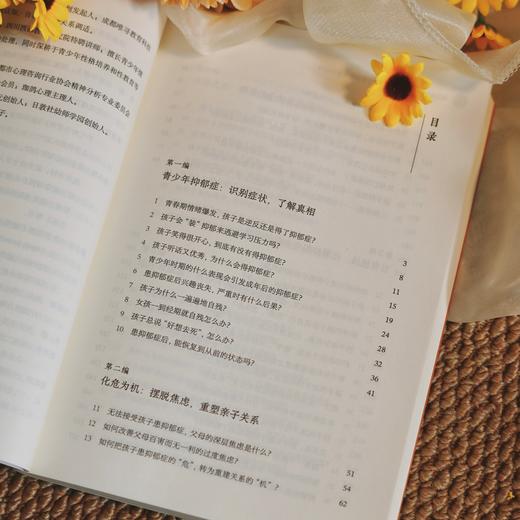 发起人，成都唯寻教育科技
关系调适。
院特聘讲师，擅长青少年情
处理，同时深耕于青少年性格培养和性教育等
都市心理咨询行业协会精神分析专业委员会
会员；心理主理人。
创始人；日敦社幼师学园创始人。
子。
目录
第一编
青少年抑郁症：识别症状，了解真相
1 青春期情绪爆发，孩子是逆反还是得了抑郁症？ 3
2 孩子会“装”抑郁来逃避学习压力吗？ 8
3 孩子笑得很开心，到底有没有得抑郁症？ 11
4 孩子听话又优秀，为什么会得抑郁症？ 15
5 青少年时期的什么表现会引发成年后的抑郁症？ 19
6 患抑郁症后兴趣丧失，严重时有什么后果？ 24
7 孩子为什么一遍遍地自残？ 28
8 女孩一到经期就自残怎么办？ 32
9 孩子总说“好想去死”，怎么办？ 36
10 患抑郁症后，能恢复到从前的状态吗？ 41
第二编
化危为机：摆脱焦虑，重塑亲子关系
11 无法接受孩子患抑郁症，父母的深层焦虑是什么？ 51
12 如何改善父母百害而无一利的过度焦虑？ 54
13 如何把孩子患抑郁症的“危”，转为重建关系的“机”？ 62